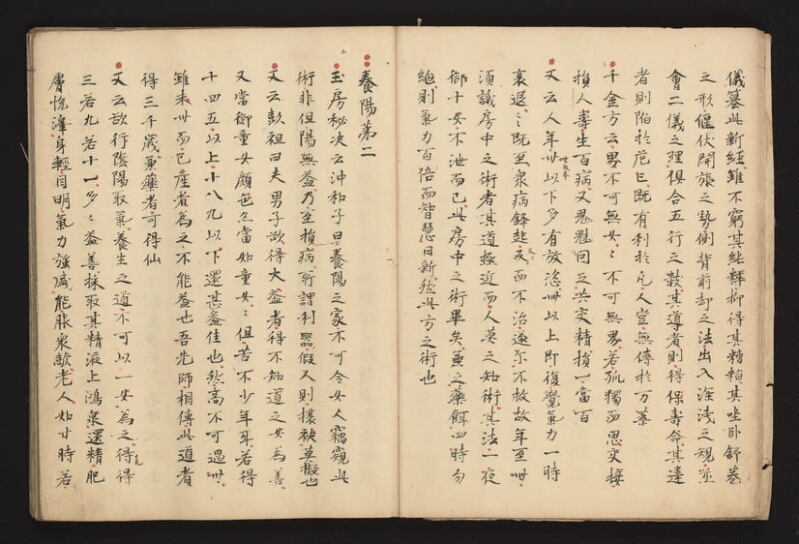 儀纂此新經雖不窮其純粹抑得其糟粕其坐臥舒卷
之形偃伏開旅之勢側背前却之法出入深淺之規並
會二儀之理俱合五行之數其導者則得保壽命其違
者則陷於危亡既有利於凡人豈無傳於万葉
千金方云男不可無女々不可無男若孤獨而思交接
損人壽生百病又鬼魅因之共交精損一當百
又云人年卌以下多有放恣卌以上即復覺氣力一時
衰退々々既至衆病鋒起久而不治遂尓不救故年至卌
須識房中之術者其道極近而人莫之知術其法一夜
御十女不泄而已此房中之術畢矣兼之藥餌四時勿
絶則氣力百倍而智慧日新然此方之術也
養陽第二
玉房秘决云沖和子曰養陽之家不可令女人竊窺此
術非但陽無益乃至損病所謂利器假人則攘袂莫擬也
又云彭祖曰夫男子欲得大益者得不知道之女為善
又當御童女顔色亦當如童女々但苦不少年耳若得
十四五以上十八九以下還甚益佳也然高不可過卌
雖未卌而已產者為之不能益也吾先師相傳此道者
得三千歲兼藥者可得仙
又云欲行陰陽取氣養生之道不可以一女為之得得
三若九若十一多々益善採取其精液上鴻泉還精肥
膚悅澤身輕目明氣力強盛能服衆敵老人如廿時若